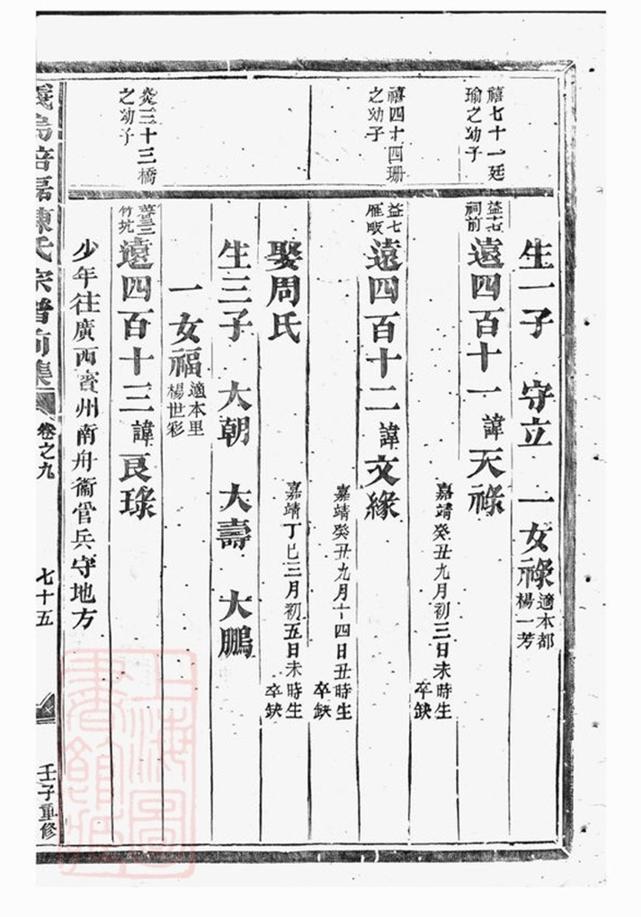 禧七十一廷
瑜之幼子
禧四十四珊
之幼子
之幼子
生一子 守立 一女祿適本都
楊一芳
祠前
遠四百十一 諱天祿
嘉靖癸丑九月初三日未時生
卒缺
益七
雁畈
遠四百十二 諱文緣
嘉靖癸丑九月十四日丑時生
卒缺
娶周氏
嘉靖丁巳三月初五日未時生
卒缺
生三子 大朝 大壽 大鵬
一女福適本里
楊世彩
竹坑
遠四百十三 諱良琭
少年往廣西賓州南舟衞管兵守地方
陳氏宗譜前集
卷之九
七十五
壬子重修
上海圖
書館藏